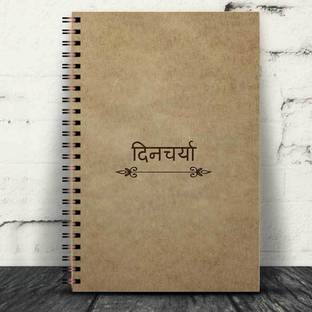 दिनचर्या